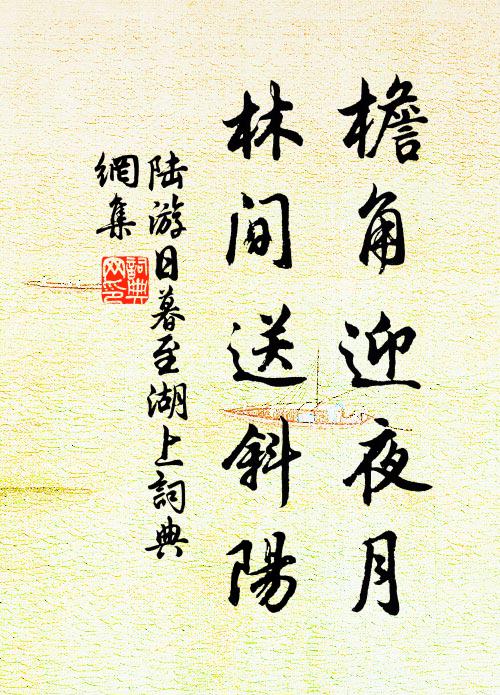 檐角迎夜月
林间送斜陽
陆游日暮至湖上詞典
網集
詞典网印